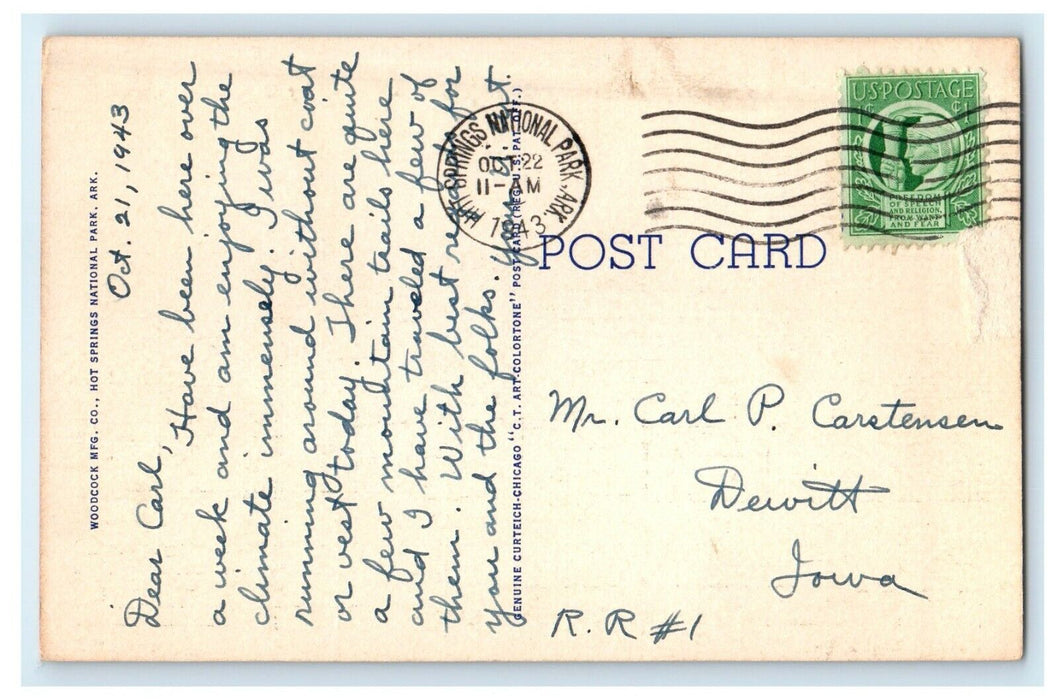 WOODCOCK MFG. CO., HOT SPRINGS NATIONAL PARK, ARK.
Oct. 21, 1943
Dear Carl,
Have been here over
a week and am enjoying the
climate immensely. I was
running around without coat
or vest today. There are quite
a few mountain trails here
and I have traveled a few of
them. With best regards for
you and the folks.
GENUINE CURTEICH-CHICAGO "C.T. ART-COLORTONE" POST CARD (REG. U.S. PAT. OFF.)
HOT SPRINGS NATIONAL PARK, ARK.
OCT 22
11-AM
1943
U.S. POSTAGE
1¢ ¢1
FREEDOM
OF SPEECH
AND RELIGION,
FROM WANT
AND FEAR
POST CARD
Mr. Carl P. Carstensen
Dewitt
Iowa
R.R #1